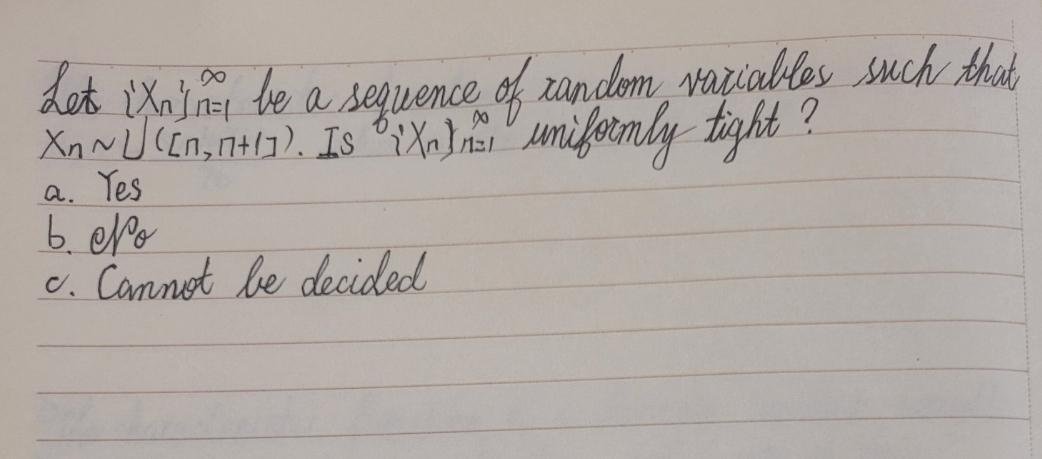 Let {X_n}_{n=1}^∞ be a sequence of random variables such that
X_n ~ U([n, n+1]). Is {X_n}_{n=1}^∞ uniformly tight?
a. Yes
b. No
c. Cannot be decided